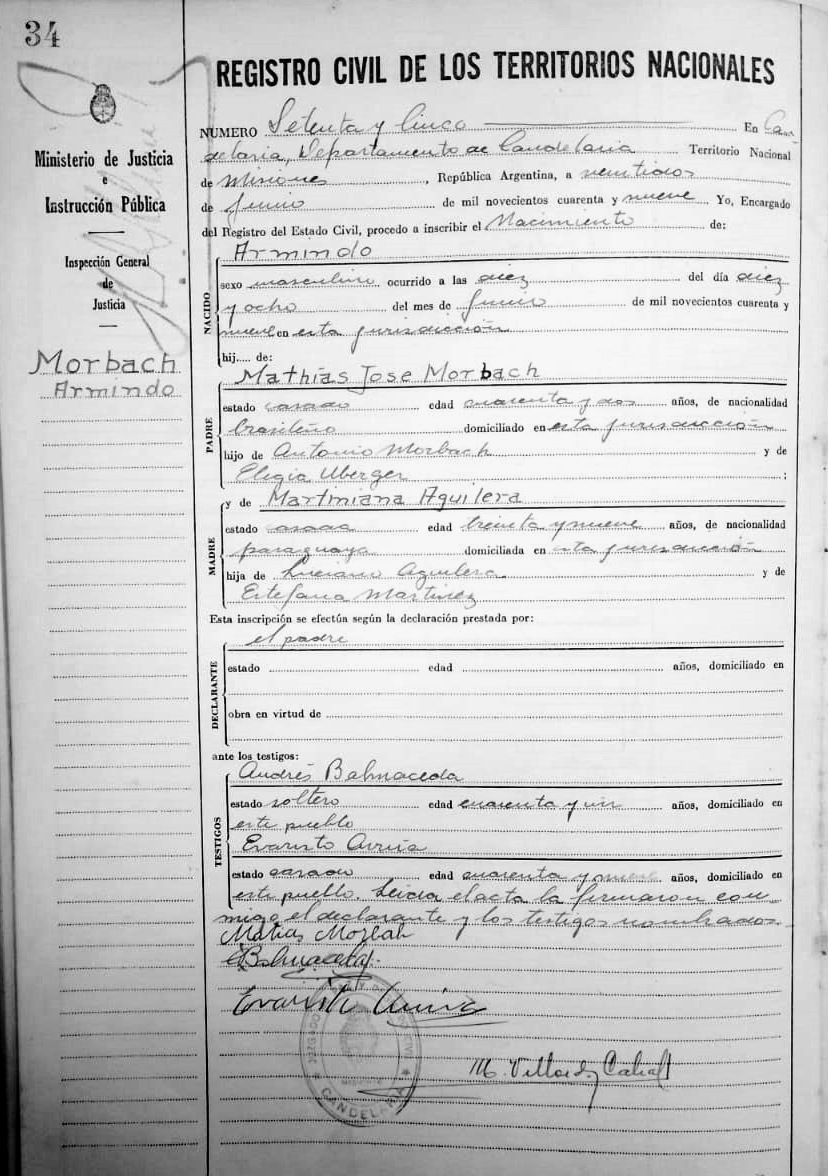 34
REGISTRO CIVIL DE LOS TERRITORIOS NACIONALES
Ministerio de Justicia
e
Instrucción Pública
Inspección General
de
Justicia
Morbach
Armindo
NUMERO Setenta y Cinco En Can
delaria, Departamento de Candelaria Territorio Nacional
de Misiones, República Argentina, a veintidos
de Junio de mil novecientos cuarenta y nueve Yo, Encargado
del Registro del Estado Civil, procedo a inscribir el Nacimiento de:
NACIDO
Armindo
sexo masculino ocurrido a las diez del día diez
y ocho del mes de Junio de mil novecientos cuarenta y
nueve en esta jurisdicción
hij.... de:
PADRE
Mathias Jose Morbach
estado casado edad cuarenta y dos años, de nacionalidad
brasileño domiciliado en esta jurisdicción
hijo de Antonio Morbach y de
Elegia Uberger ;
MADRE
y de Martiniana Aguilera
estado casada edad treinta y nueve años, de nacionalidad
paraguaya domiciliada en esta jurisdicción
hija de Luciano Aguilera y de
Estefana Martinez
Esta inscripción se efectúa según la declaración prestada por:
DECLARANTE
el padre
estado edad años, domiciliado en
obra en virtud de
ante los testigos:
TESTIGOS
Andrés Balmaceda
estado soltero edad cuarenta y un años, domiciliado en
este pueblo
Evaristo
estado casado edad cuarenta y nueve años, domiciliado en
este pueblo. Leida el acta la firmaron con
migo el declarante y los testigos nombrados.
Matias Morbah
Balmaceda
Evaristo
M. Villordo Cabral
JUZGADO DE PAZ
MISIONES
CANDELARIA